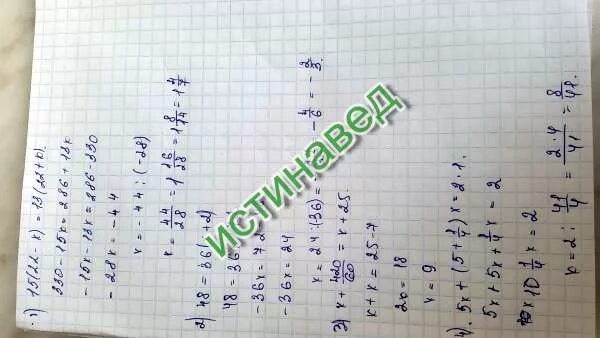 1) 15(22-x) = 13(22+x).
330-15x = 286+13x
-15x-13x = 286-330
-28x = -44
x = -44:(-28)
x = 44/28 = 1 16/28 = 1 8/14 = 1 4/7
2) 48 = 36(x+2)
48 = 36
-36x = 72
-36x = 24
x = 24:(36) = - 4/6 = - 2/3.
3) x + 420/60 = x+25.
x+x = 25-7
2x = 18
x = 9
4). 5x+(5+1/4)x = 2·1.
5x+5x+1/4x = 2
10 1/4 x = 2
x = 2: 41/4 = 2·4/41 = 8/41.
ИСТИНАВЕД